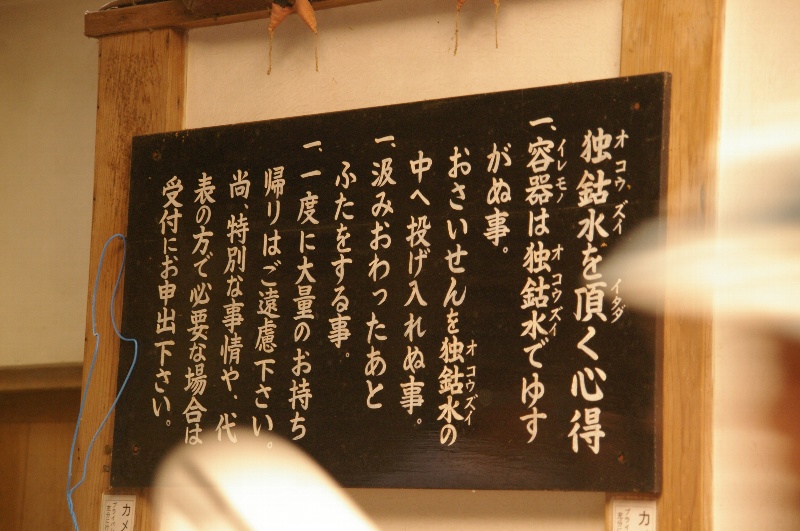 独鈷水を頂く心得
オコウズイ
イタダ
一、容器は独鈷水でゆす
イレモノ
オコウズイ
がぬ事。
おさいせんを独鈷水の
オコウズイ
中へ投げ入れぬ事。
一、汲みおわったあと
ふたをする事。
一、一度に大量のお持ち
帰りはご遠慮下さい。
尚、特別な事情や、代
表の方で必要な場合は
受付にお申出下さい。
カメ
カ